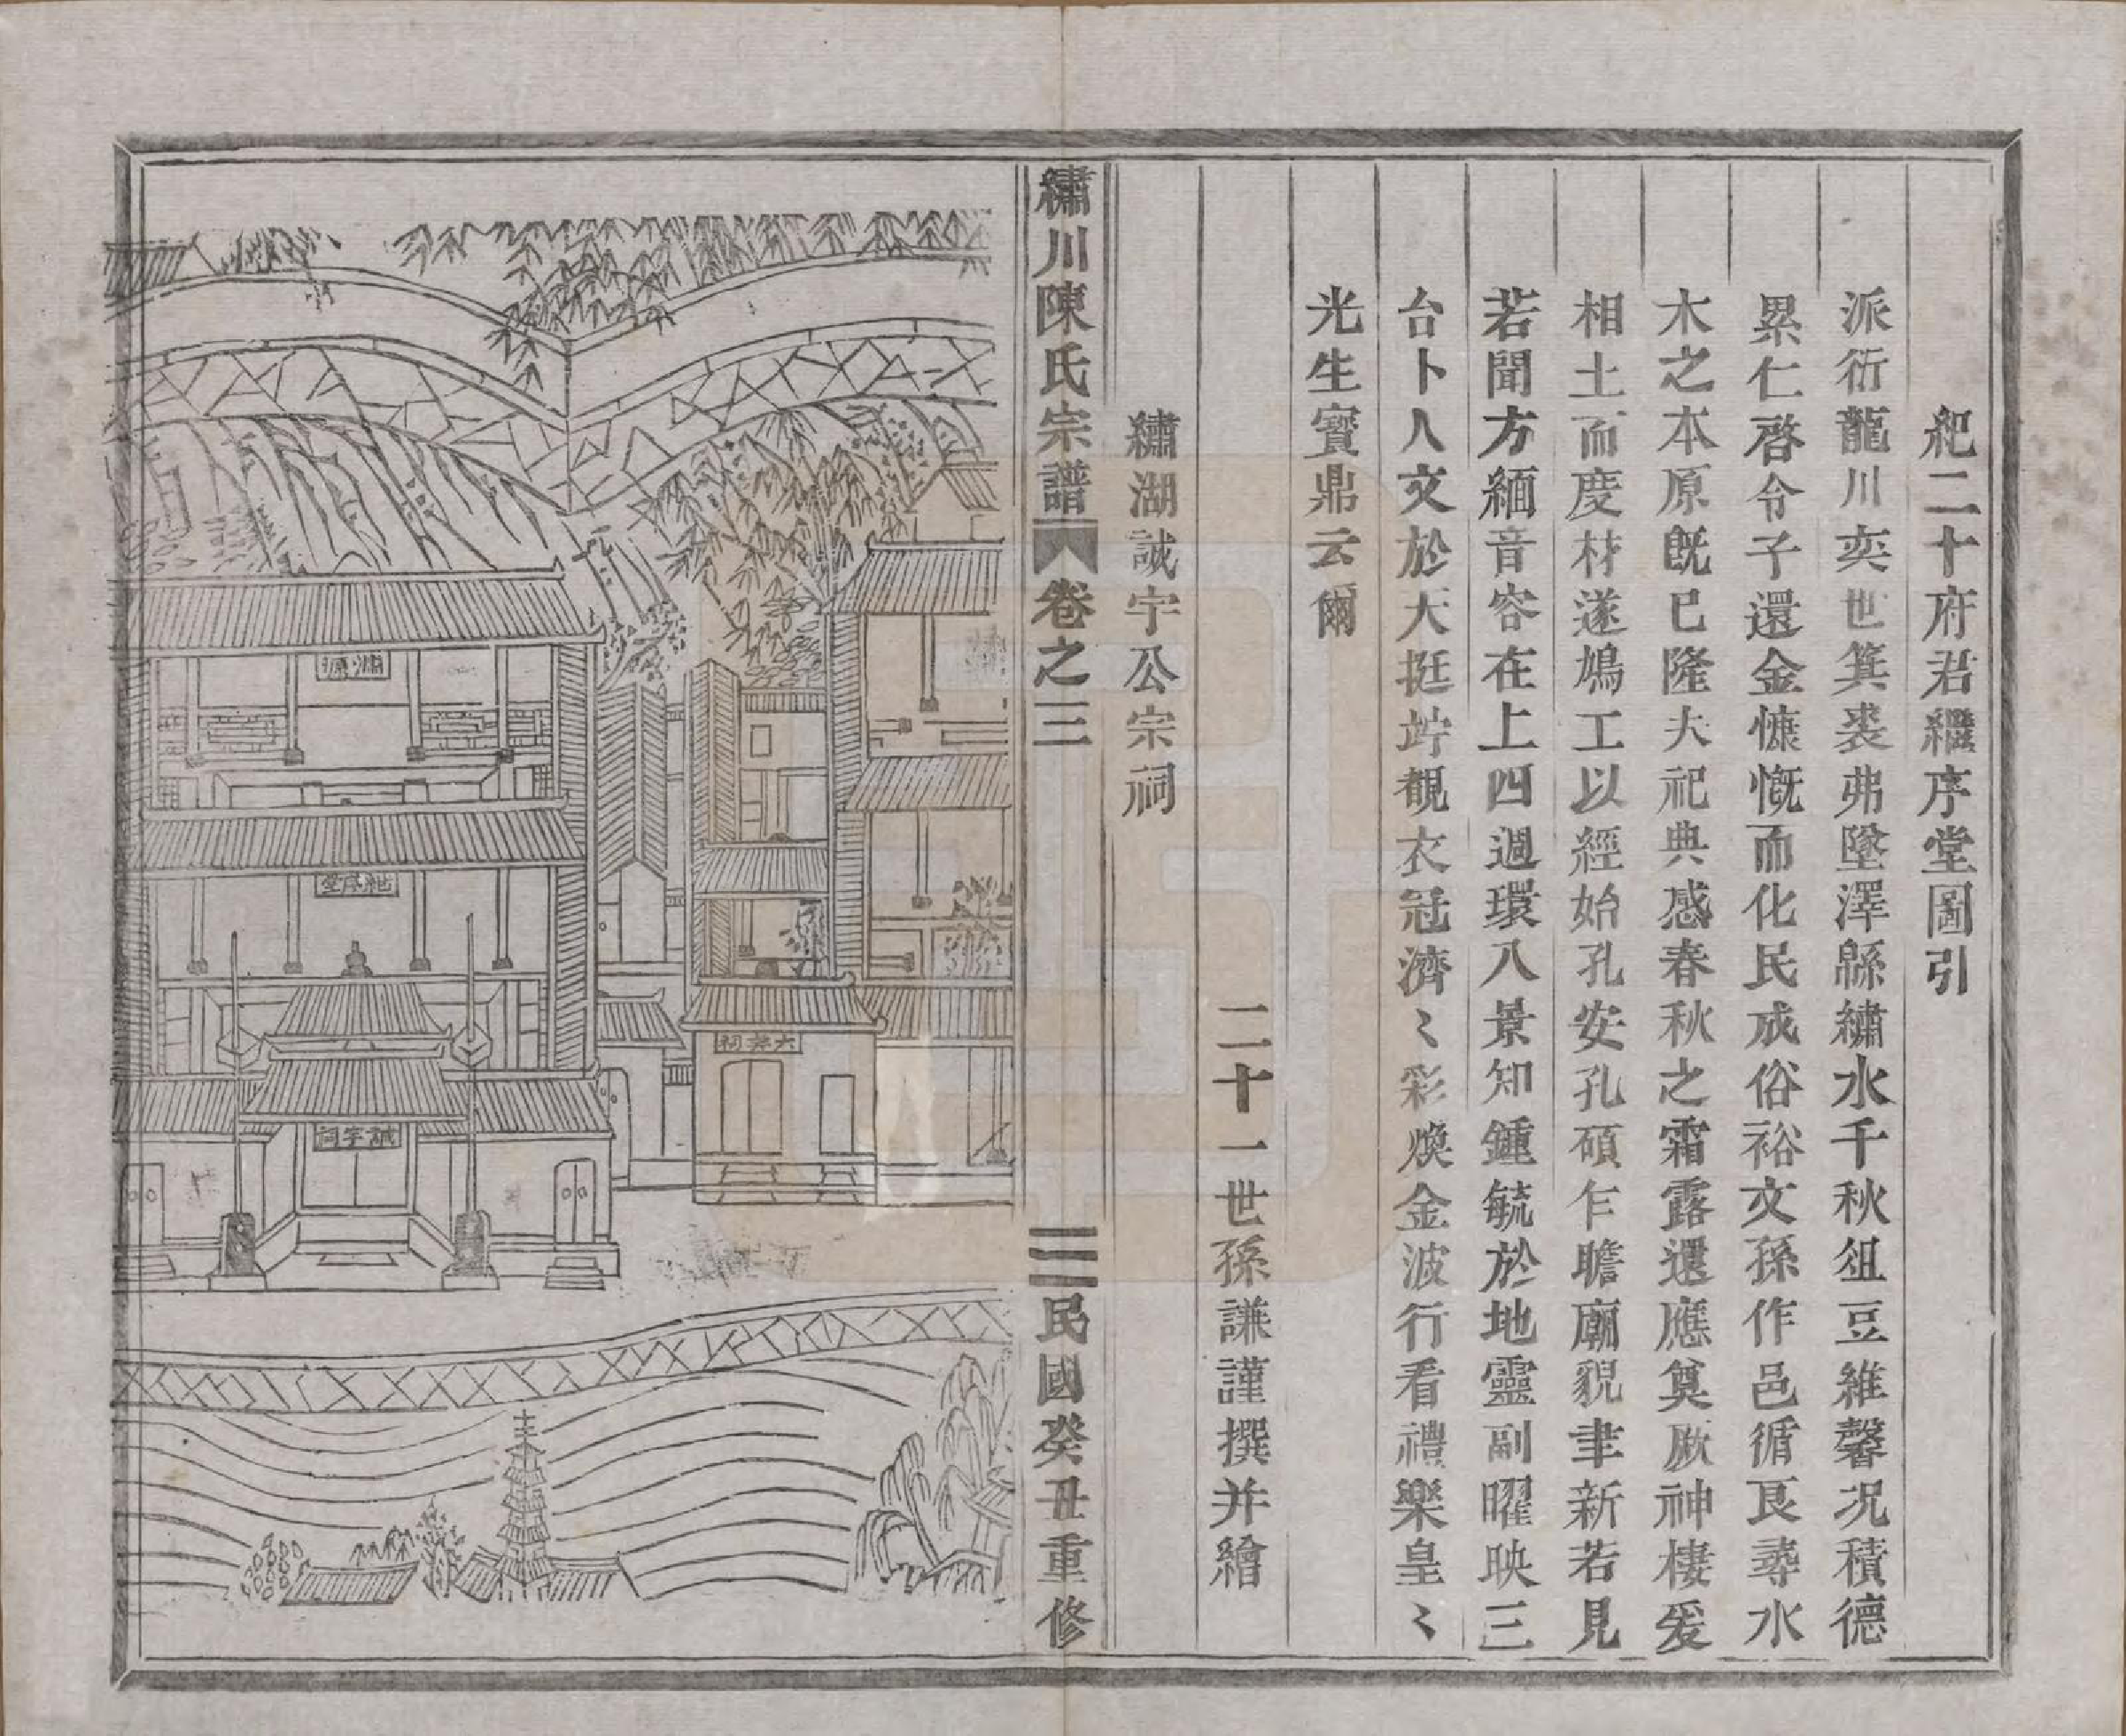 紀二十府君繼序堂圖引
派衍龍川奕世箕裘弗墜澤縣繡水千秋俎豆維馨况積德
累仁啓令子還金慷慨而化民成俗裕文孫作邑循良尋水
木之本原旣已隆大祀典感春秋之霜露還應奠厥神棲爰
相土而度材遂鳩工以經始孔安孔碩乍瞻廟貌聿新若見
若聞方緬音容在上四週環八景知鍾毓於地靈副曜映三
台卜人文於大挺竚覩衣冠濟〻彩煥金波行看禮樂皇〻
光生寳鼎云爾
二十一世孫謙謹撰并繪
繡湖誠宇公宗祠
繡川陳氏宗譜
卷之三
三
民國癸丑重修
瀨源
繼序堂
誠宇祠
大宗祠